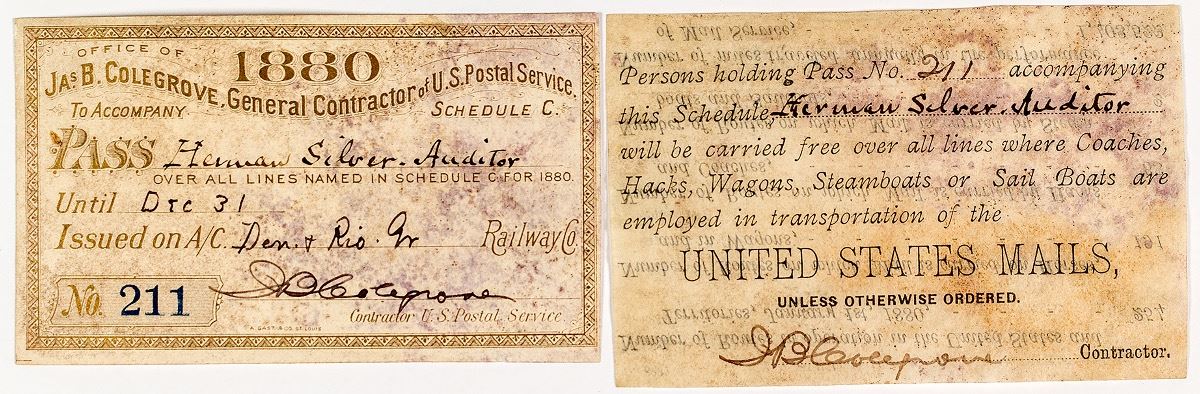 OFFICE OF
JAS B. COLEGROVE, General Contractor of U.S. Postal Service.
1880
TO ACCOMPANY SCHEDULE C.
PASS Herman Silver. Auditor
OVER ALL LINES NAMED IN SCHEDULE C FOR 1880.
Until Dec 31
Issued on A/C. Den. & Rio. Gr Railway Co.
No. 211 JB Colegrove
Contractor U.S. Postal Service
A. GAST & CO. ST. LOUIS
Persons holding Pass No. 211 accompanying
this Schedule Herman Silver. Auditor
will be carried free over all lines where Coaches,
Hacks, Wagons, Steamboats or Sail Boats are
employed in transportation of the
UNITED STATES MAILS,
UNLESS OTHERWISE ORDERED.
JB Colegrove Contractor.